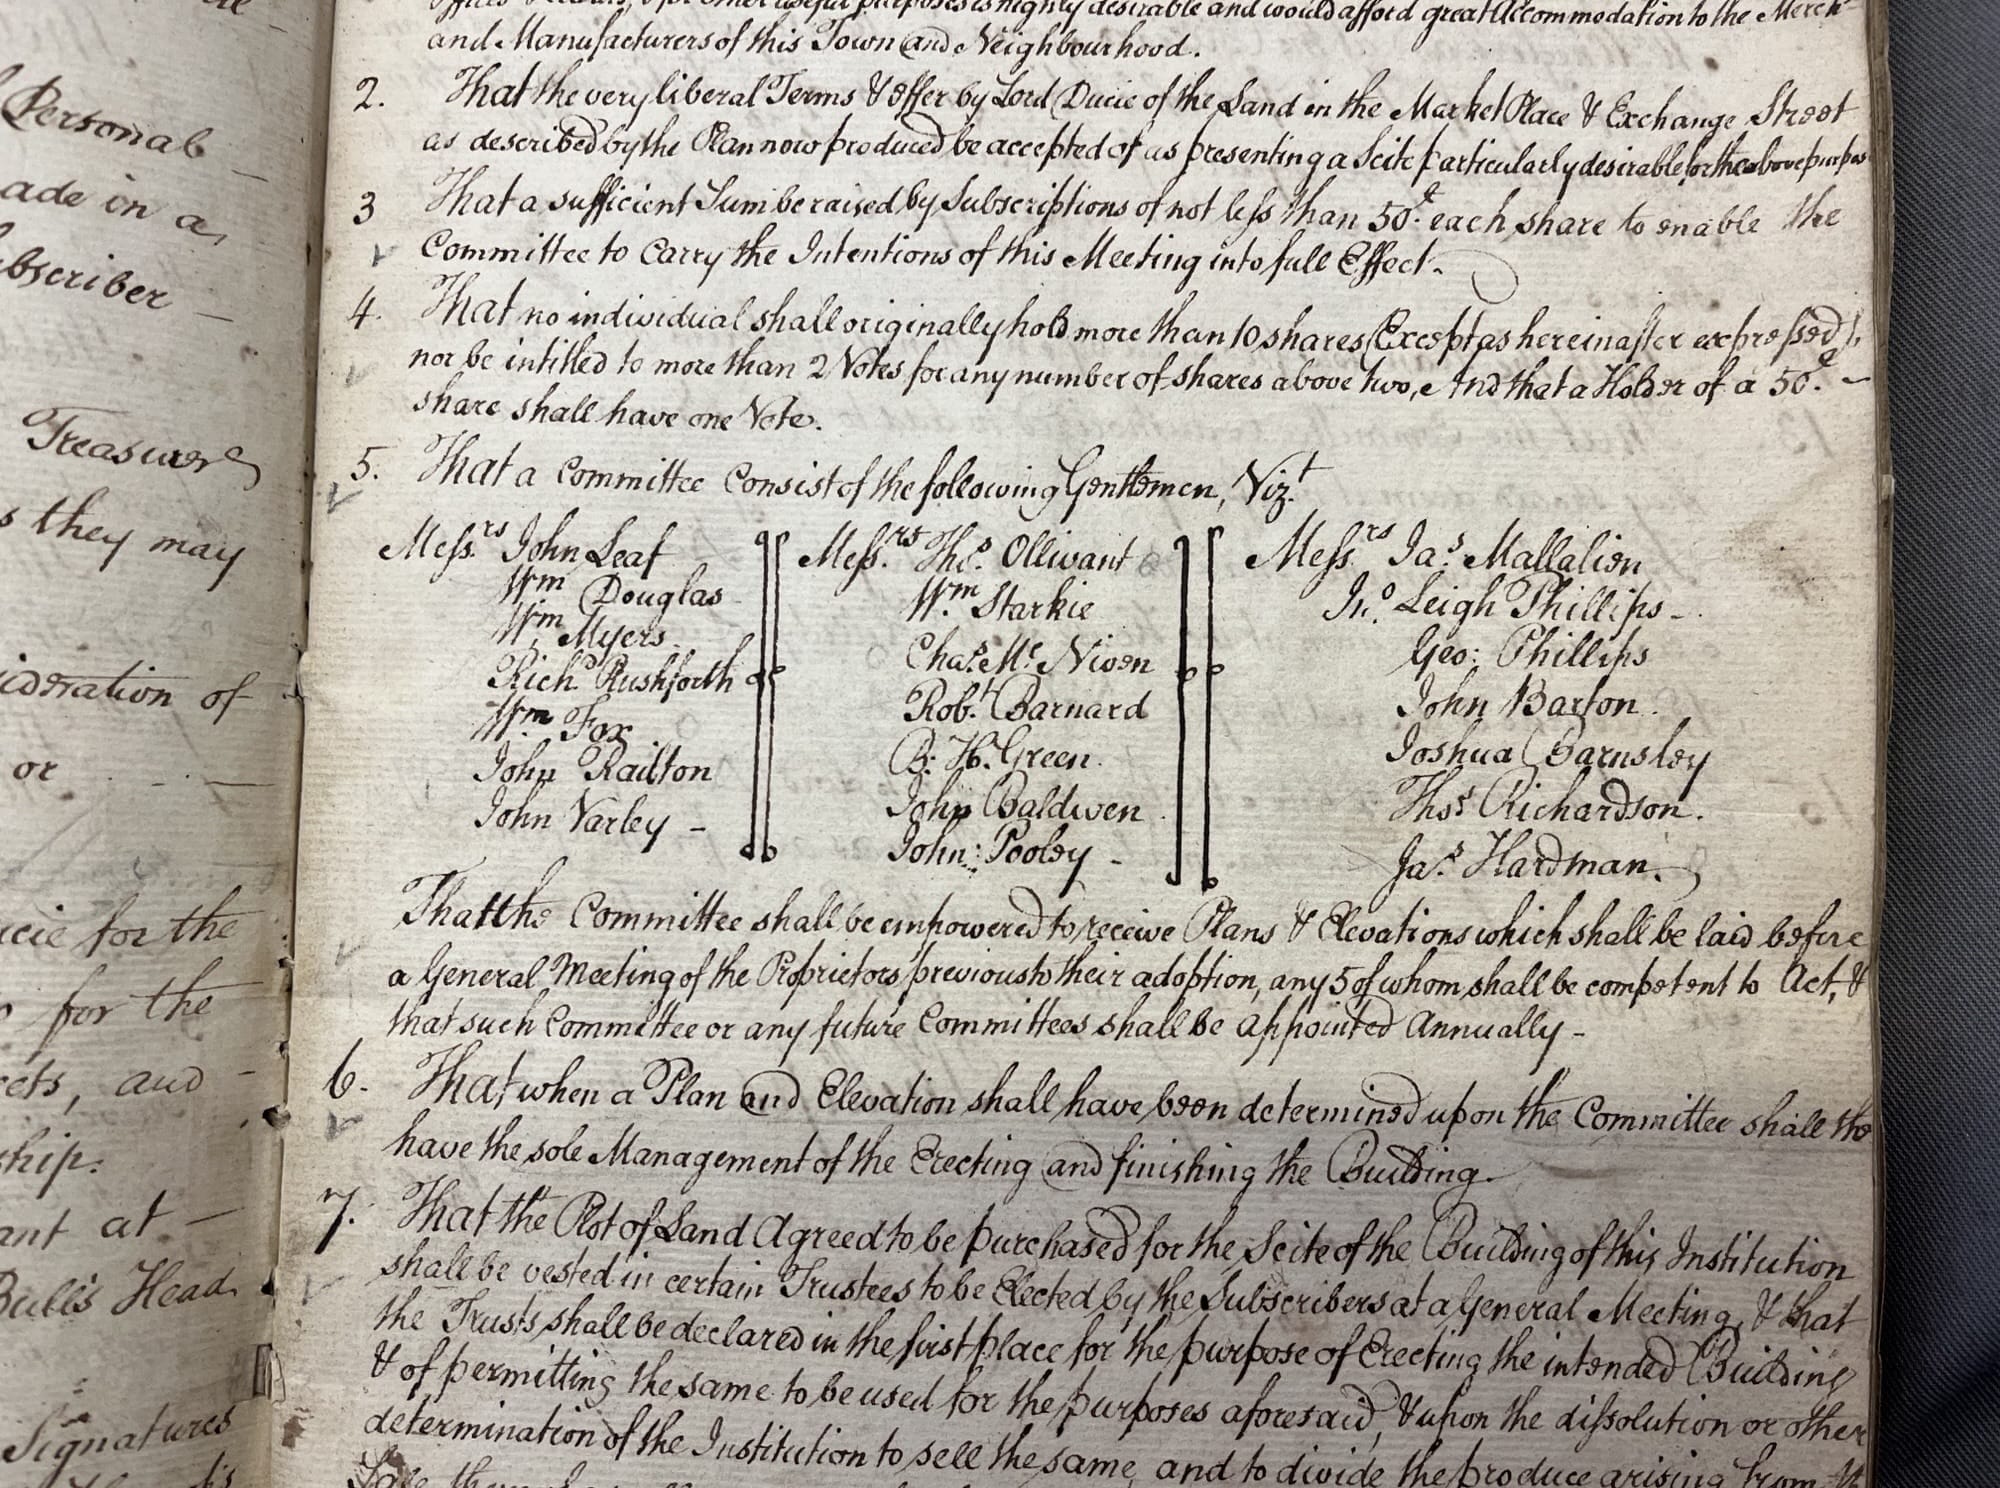 Personal
ade in a
bscriber —
Treasurer
s they may
ideration of
or
cie for the
for the
ets, and —
ship.
ant at —
Bull's Head
Signatures
desirable and would afford great Accommodation to the Merch
and Manufacturers of this Town and Neighbourhood.
2. That the very liberal Terms & offer by Lord Ducie of the Land in the Market Place & Exchange Street
as described by the Plan now produced be accepted of as presenting a Scite particularly desirable for the above purpos
3 That a sufficient Sum be raised by Subscriptions of not less than 50£. each share to enable the
Committee to Carry the Intentions of this Meeting into full Effect.
4. That no individual shall originally hold more than 10 shares (Except as hereinafter expressed),
nor be intitled to more than 2 Votes for any number of shares above two, And that a Holder of a 50£. —
share shall have one Vote.
5. That a Committee Consist of the following Gentlemen, Viz.t
Mess.rs John Leaf
Wm Douglas
Wm Myers
Rich.d Rushforth
Wm Fox
John Railton
John Varley —
Mess.rs Tho.s Ollivant
Wm Starkie
Cha.s Mc Niven
Rob.t Barnard
B. H. Green.
John Baldwen
John: Pooley —
Mess.rs Ja.s Mallalien
Jn.o Leigh Phillips —
Geo: Phillips
John Barton.
Joshua Barnsley
Thos.s Richardson.
Ja.s Hardman.
That the Committee shall be empowered to receive Plans & Elevations which shall be laid before
a General Meeting of the Proprietors previous to their adoption, any 5 of whom shall be competent to Act, &
that such Committee or any future Committees shall be Appointed Annually —
6. That when a Plan and Elevation shall have been determined upon the Committee shall the
have the sole Management of the Erecting and finishing the Building.
7. That the Plot of Land Agreed to be purchased for the Scite of the Building of this Institution
shall be vested in certain Trustees to be Elected by the Subscribers at a General Meeting, & that
the Trusts shall be declared in the first place for the purpose of Erecting the intended Building
& of permitting the same to be used for the purposes aforesaid, & upon the dissolution or other
determination of the Institution to sell the same, and to divide the produce arising from
Sale